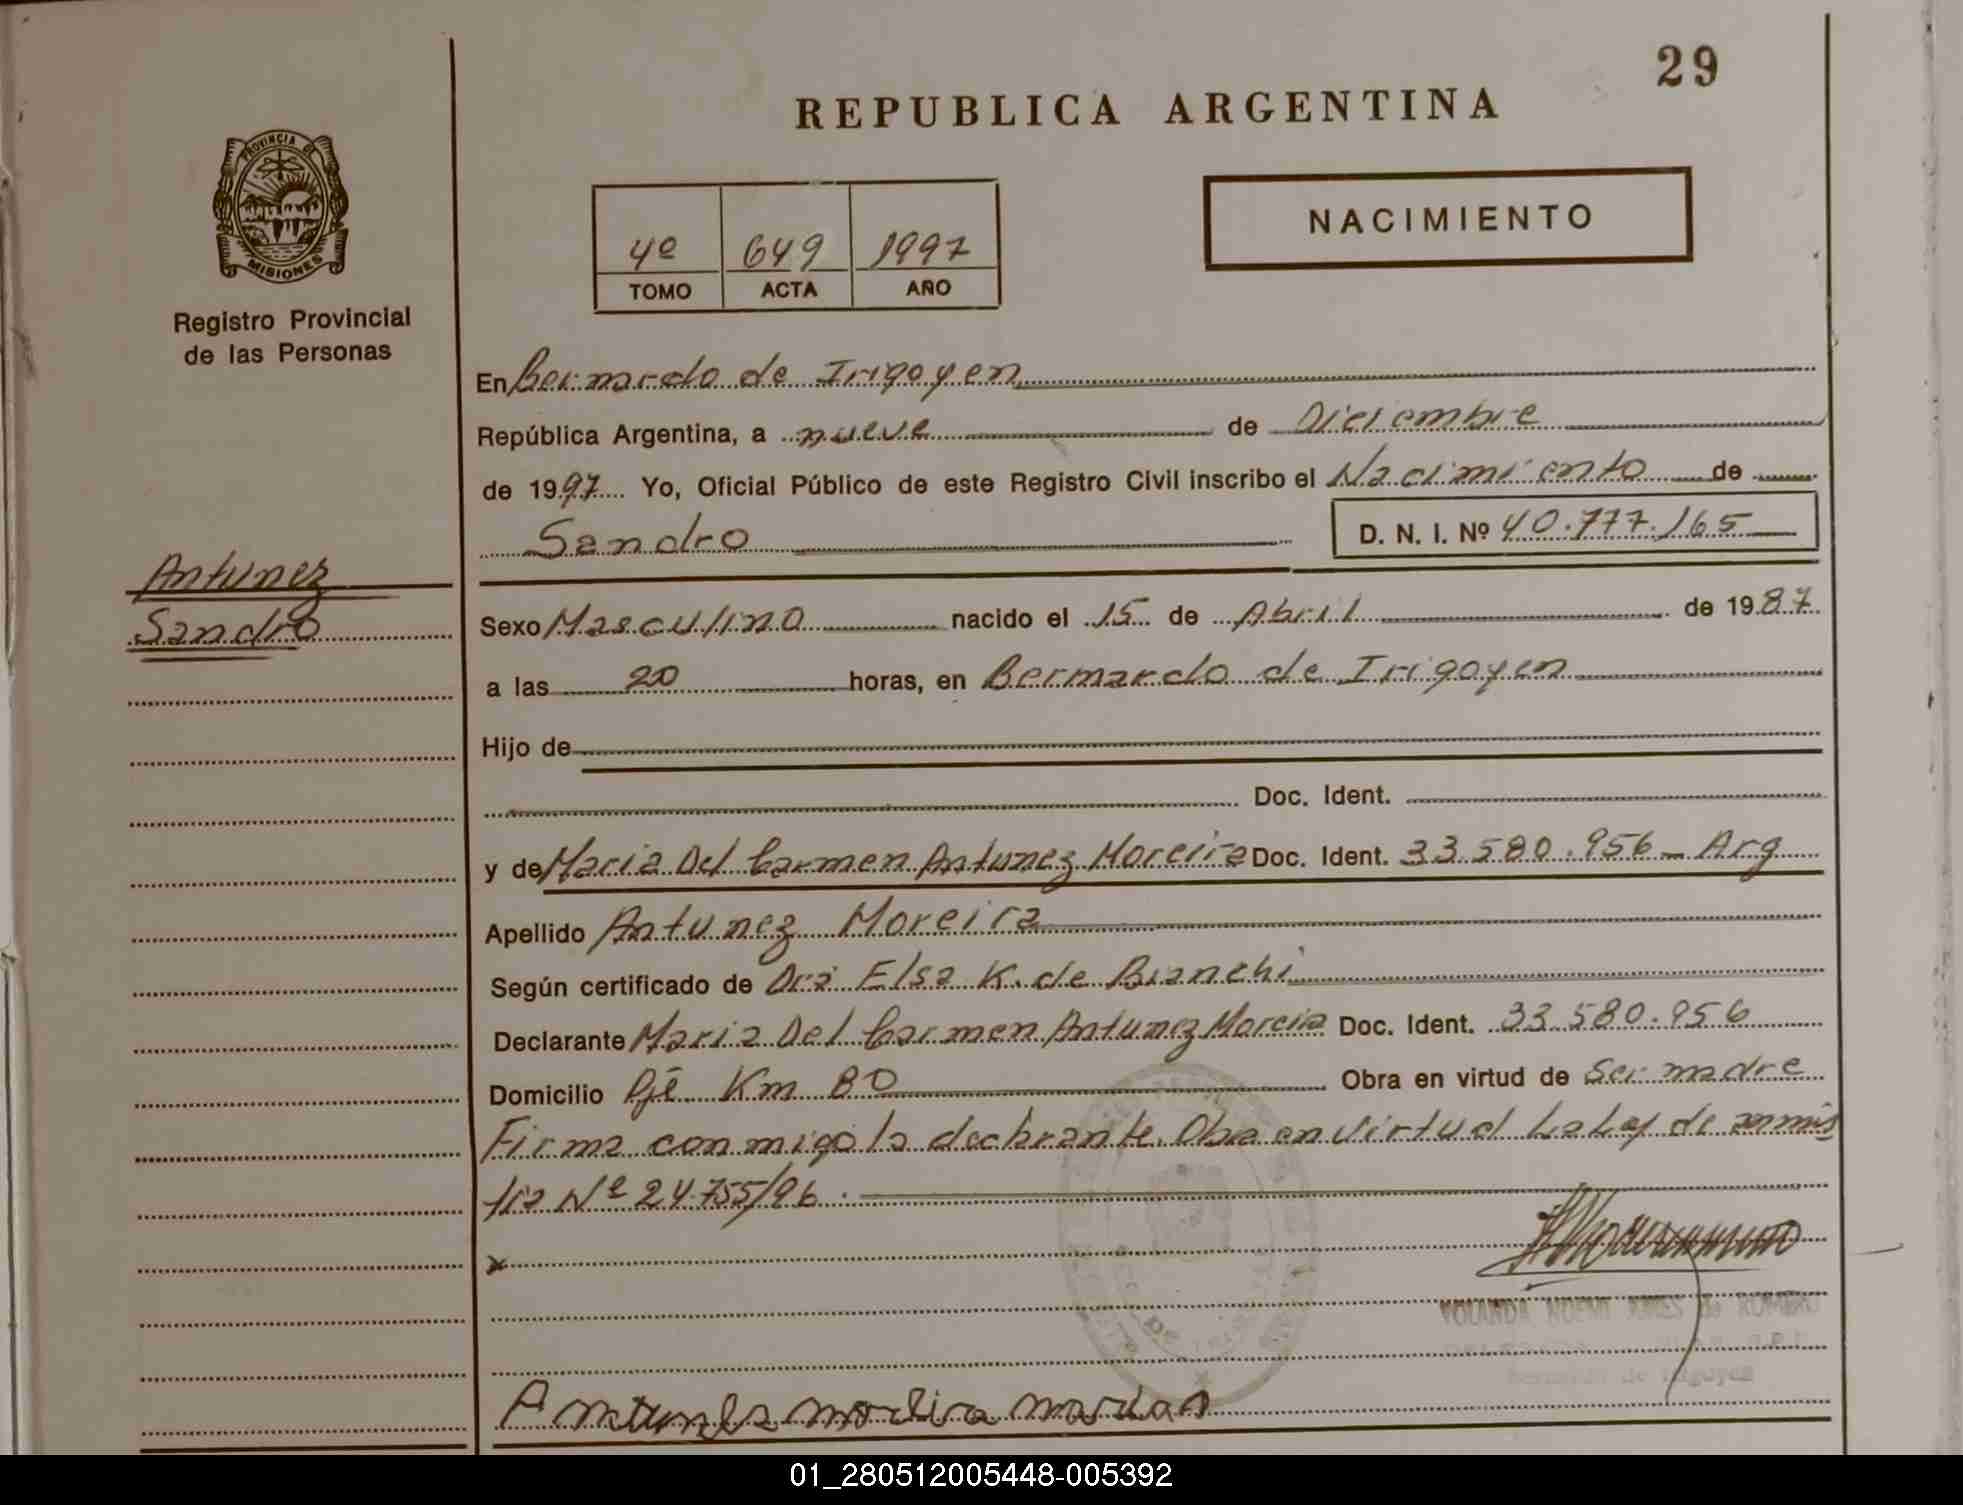 29
REPUBLICA ARGENTINA
PROVINCIA DE
MISIONES
Registro Provincial
de las Personas
4º 649 1997
TOMO ACTA AÑO
NACIMIENTO
En Bernardo de Irigoyen
República Argentina, a nueve de Diciembre
de 1997 Yo, Oficial Público de este Registro Civil inscribo el Nacimiento de
Sandro D. N. I. Nº 40.777.165
Antunez
Sandro
Sexo Masculino nacido el 15 de Abril de 1987
a las 20 horas, en Bernardo de Irigoyen
Hijo de
Doc. Ident.
y de Maria Del Carmen Antunez Moreira Doc. Ident. 33.580.956 - Arg
Apellido Antunez Moreira
Según certificado de Dra Elsa K. de Bianchi
Declarante Maria Del Carmen Antunez Moreira Doc. Ident. 33.580.956
Domicilio Pje Km 80 Obra en virtud de Ser madre
Firma conmigo la declarante. Obra en virtud La Ley de amnis
tia Nº 24.755/96.
x
YOLANDA NOEMI de ROMERO
Bernardo de Irigoyen
Antunes moreira maria
01_280512005448-005392